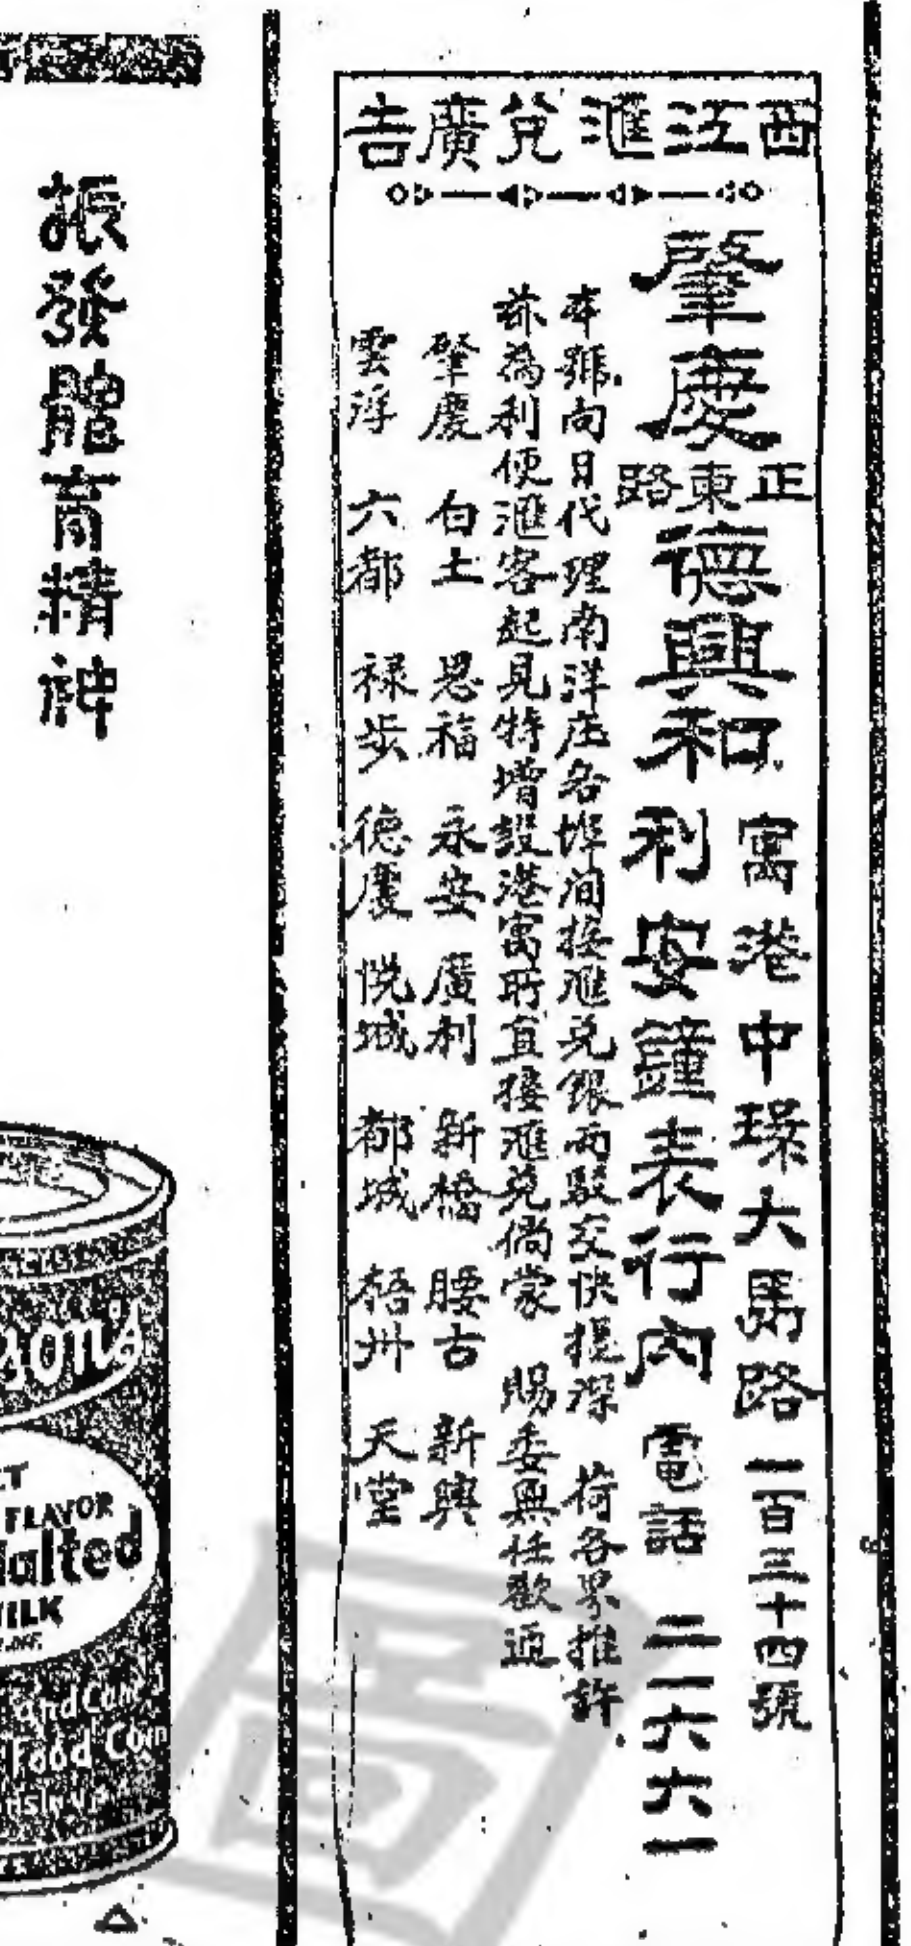 西江滙兌廣告
肇慶
正東路
德興和
寓港中環大馬路一百三十四號
利安鐘表行內 電話 二一六六一
本號向日代理南洋庄各埠间接滙兑銀両駁交快捷深 荷各界推許
茲為利便滙客起見特增設港寓所直接滙兑倘蒙 賜委無任歡迎
肇慶 白土 思福 永安 廣利 新橋 腰古 新興
雲浮 六都 禄步 德慶 悦城 都城 梧州 天堂
振發體育精神
son's
FLAVOR
Malted
MILK
and Can
Food Com
圖